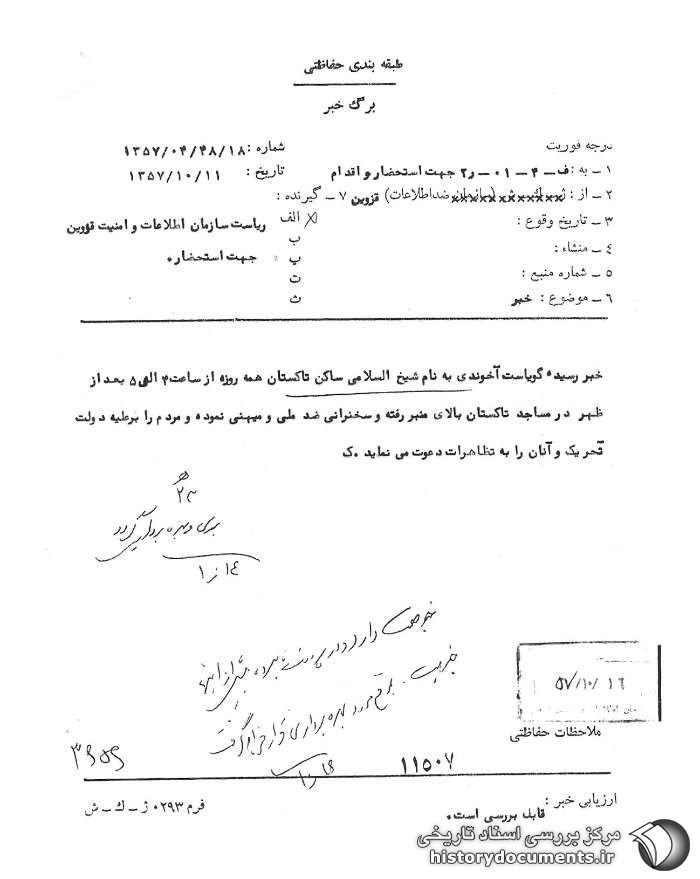 طبقه بندی حفاظتی
برگ خبر
درجه فوریت
شماره : ۱۳۵۷/۰۴/۴۸/۱۸
۱ – به : ف – ۴ – ۰۱ – ر۲ جهت استحضار و اقدام
تاریخ : ۱۳۵۷/۱۰/۱۱
۲ – از : (سازمان ضد اطلاعات) قزوین ۷ – گیرنده :
۳ – تاریخ وقوع :
الف ریاست سازمان اطلاعات و امنیت قزوین
ب
۴ – منشاء :
پ جهت استحضار.
۵ – شماره منبع :
ت
۶ – موضوع : خبر
ث
خبر رسیده گویاست آخوندی به نام شیخ السلامی ساکن تاکستان همه روزه از ساعت ۴ الی ۵ بعد از
ظهر در مساجد تاکستان بالای منبر رفته و سخنرانی ضد ملی و میهنی نموده و مردم را برعلیه دولت
تحریک و آنان را به تظاهرات دعوت می نماید . ک
۲۳
۱۴ ر ۱۰
۵۷/۱۰/۱۶
ملاحظات حفاظتی
11507
ارزیابی خبر :
قابل بررسی است.
فرم ۰۲۹۳ ژ – ک – ش
مرکز بررسی اسناد تاریخی
historydocuments.ir